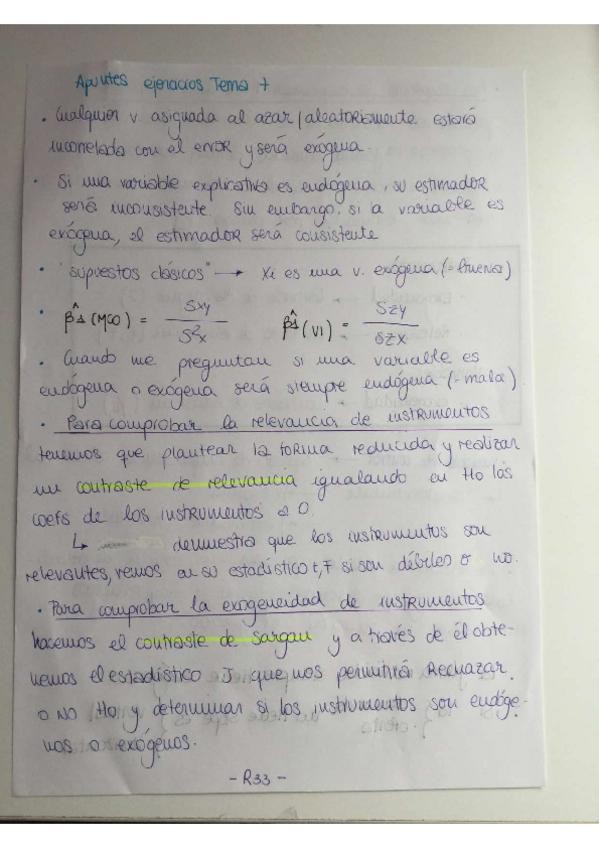 Apuntes ejercicios Tema 7
• Cualquier v. asignada al azar/aleatoriamente estará
incorrelada con el error y será exógena.
• Si una variable explicativa es endógena, su estimador
será inconsistente. Sin embargo, si a variable es
exógena, el estimador será consistente
• "supuestos clásicos" → Xi es una v. exógena (= buena)
• β̂1 (MCO) = Sxy / S²x β̂1 (VI) = Szy / Szx
• Cuando me preguntan si una variable es
endógena o exógena será siempre endógena (= mala)
• Para comprobar la relevancia de instrumentos
tenemos que plantear la forma reducida y realizar
un contraste de relevancia igualando en Ho los
coefs de los instrumentos a 0
↳ demuestra que los instrumentos son
relevantes, vemos en su estadístico t, F si son débiles o no.
• Para comprobar la exogeneidad de instrumentos
hacemos el contraste de Sargan y a través de él obte-
nemos el estadístico J que nos permitirá Rechazar
o no Ho y determinar si los instrumentos son endóge-
nos o exógenos.
- R33 -